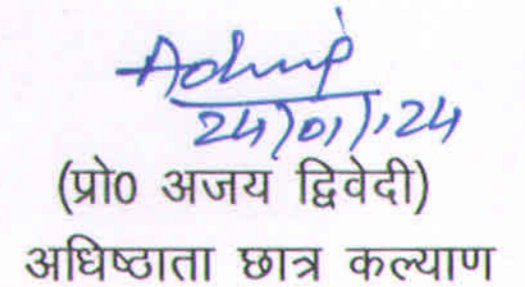 24/01/24
(प्रो0 अजय द्विवेदी)
अधिष्ठाता छात्र कल्याण